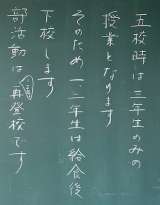 五校時は三年生のみの
授業となります
そのため一、二年生は給食後
下校します
部活動は再登校です